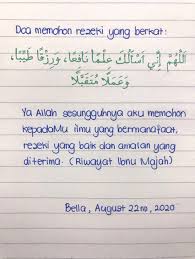 Doa memohon rezeki yang berkat:
اَللّٰهُمَّ إِنِّي أَسْأَلُكَ عِلْمًا نَافِعًا، وَرِزْقًا طَيِّبًا،
وَعَمَلًا مُتَقَبَّلًا
Ya Allah sesungguhnya aku memohon
kepadaMu ilmu yang bermanafaat,
rezeki yang baik dan amalan yang
diterima. (Riwayat Ibnu Majah)
Bella, August 22nd, 2020